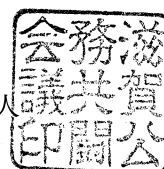 滋賀公
務共闘
会議印
人